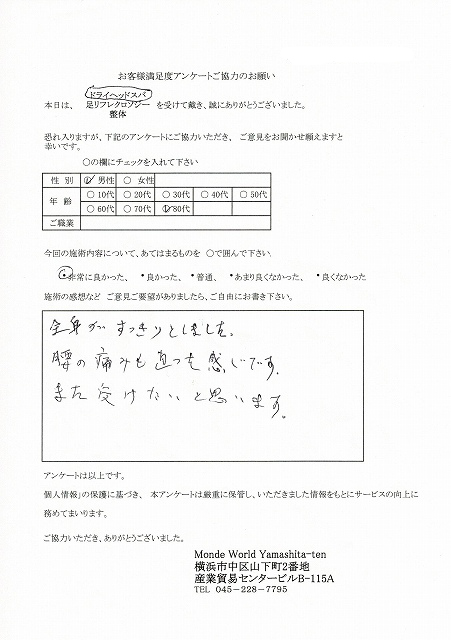 お客様満足度アンケートご協力のお願い
ドライヘッドスパ
本日は、 足リフレクロソジー を受けて戴き、誠にありがとうございました。
整体
恐れ入りますが、下記のアンケートにご協力いただき、 ご意見をお聞かせ願えますと
幸いです。
○の欄にチェックを入れて下さい
性 別 ○ 男性 ○ 女性
年 齢 ○ 10代 ○ 20代 ○ 30代 ○ 40代 ○ 50代
○ 60代 ○ 70代 ○ 80代
ご職業
今回の施術内容について、あてはまるものを ○で囲んで下さい
・非常に良かった、 ・良かった、 ・普通、 ・あまり良くなかった、 ・良くなかった
施術の感想など ご意見ご要望がありましたら、ご自由にお書き下さい。
全身が すっきりとしました。
腰の痛みも 直った感じです。
また 受けたいと思います。
アンケートは以上です。
個人情報」の保護に基づき、 本アンケートは厳重に保管し、いただきました情報をもとにサービスの向上に
務めてまいります。
ご協力いただき、ありがとうございました。
Monde World Yamashita-ten
横浜市中区山下町2番地
産業貿易センタービルB-115A
TEL 045-228-7795